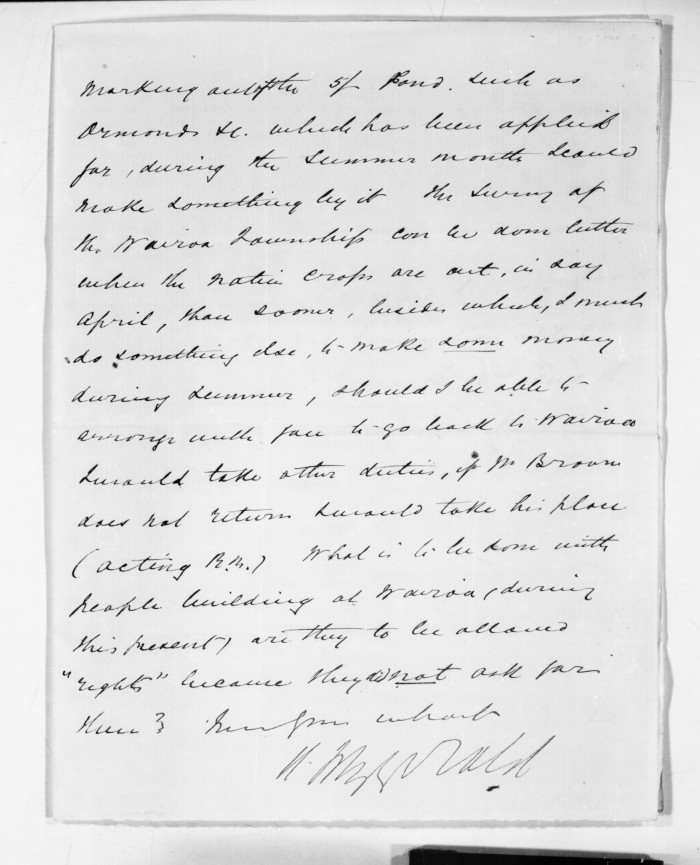 Marking out of the 5/ Land. Such as
Ormonds &c. which has been applied
for, during the Summer months I could
make something by it the survey of
the Wairoa Township can be done better
when the native crops are out, in say
April, than sooner, besides which, I must
do something else, to make some money
during summer, should I be able to
arrange with you to go back to Wairoa
I would take other duties, if Mr Brown
does not return I would take his place
(acting R.M.) What is to be done with
People building at Wairoa, (during
this present) are they to be allowed
"rights" because they did not ask for
them?
H. Fitzgerald